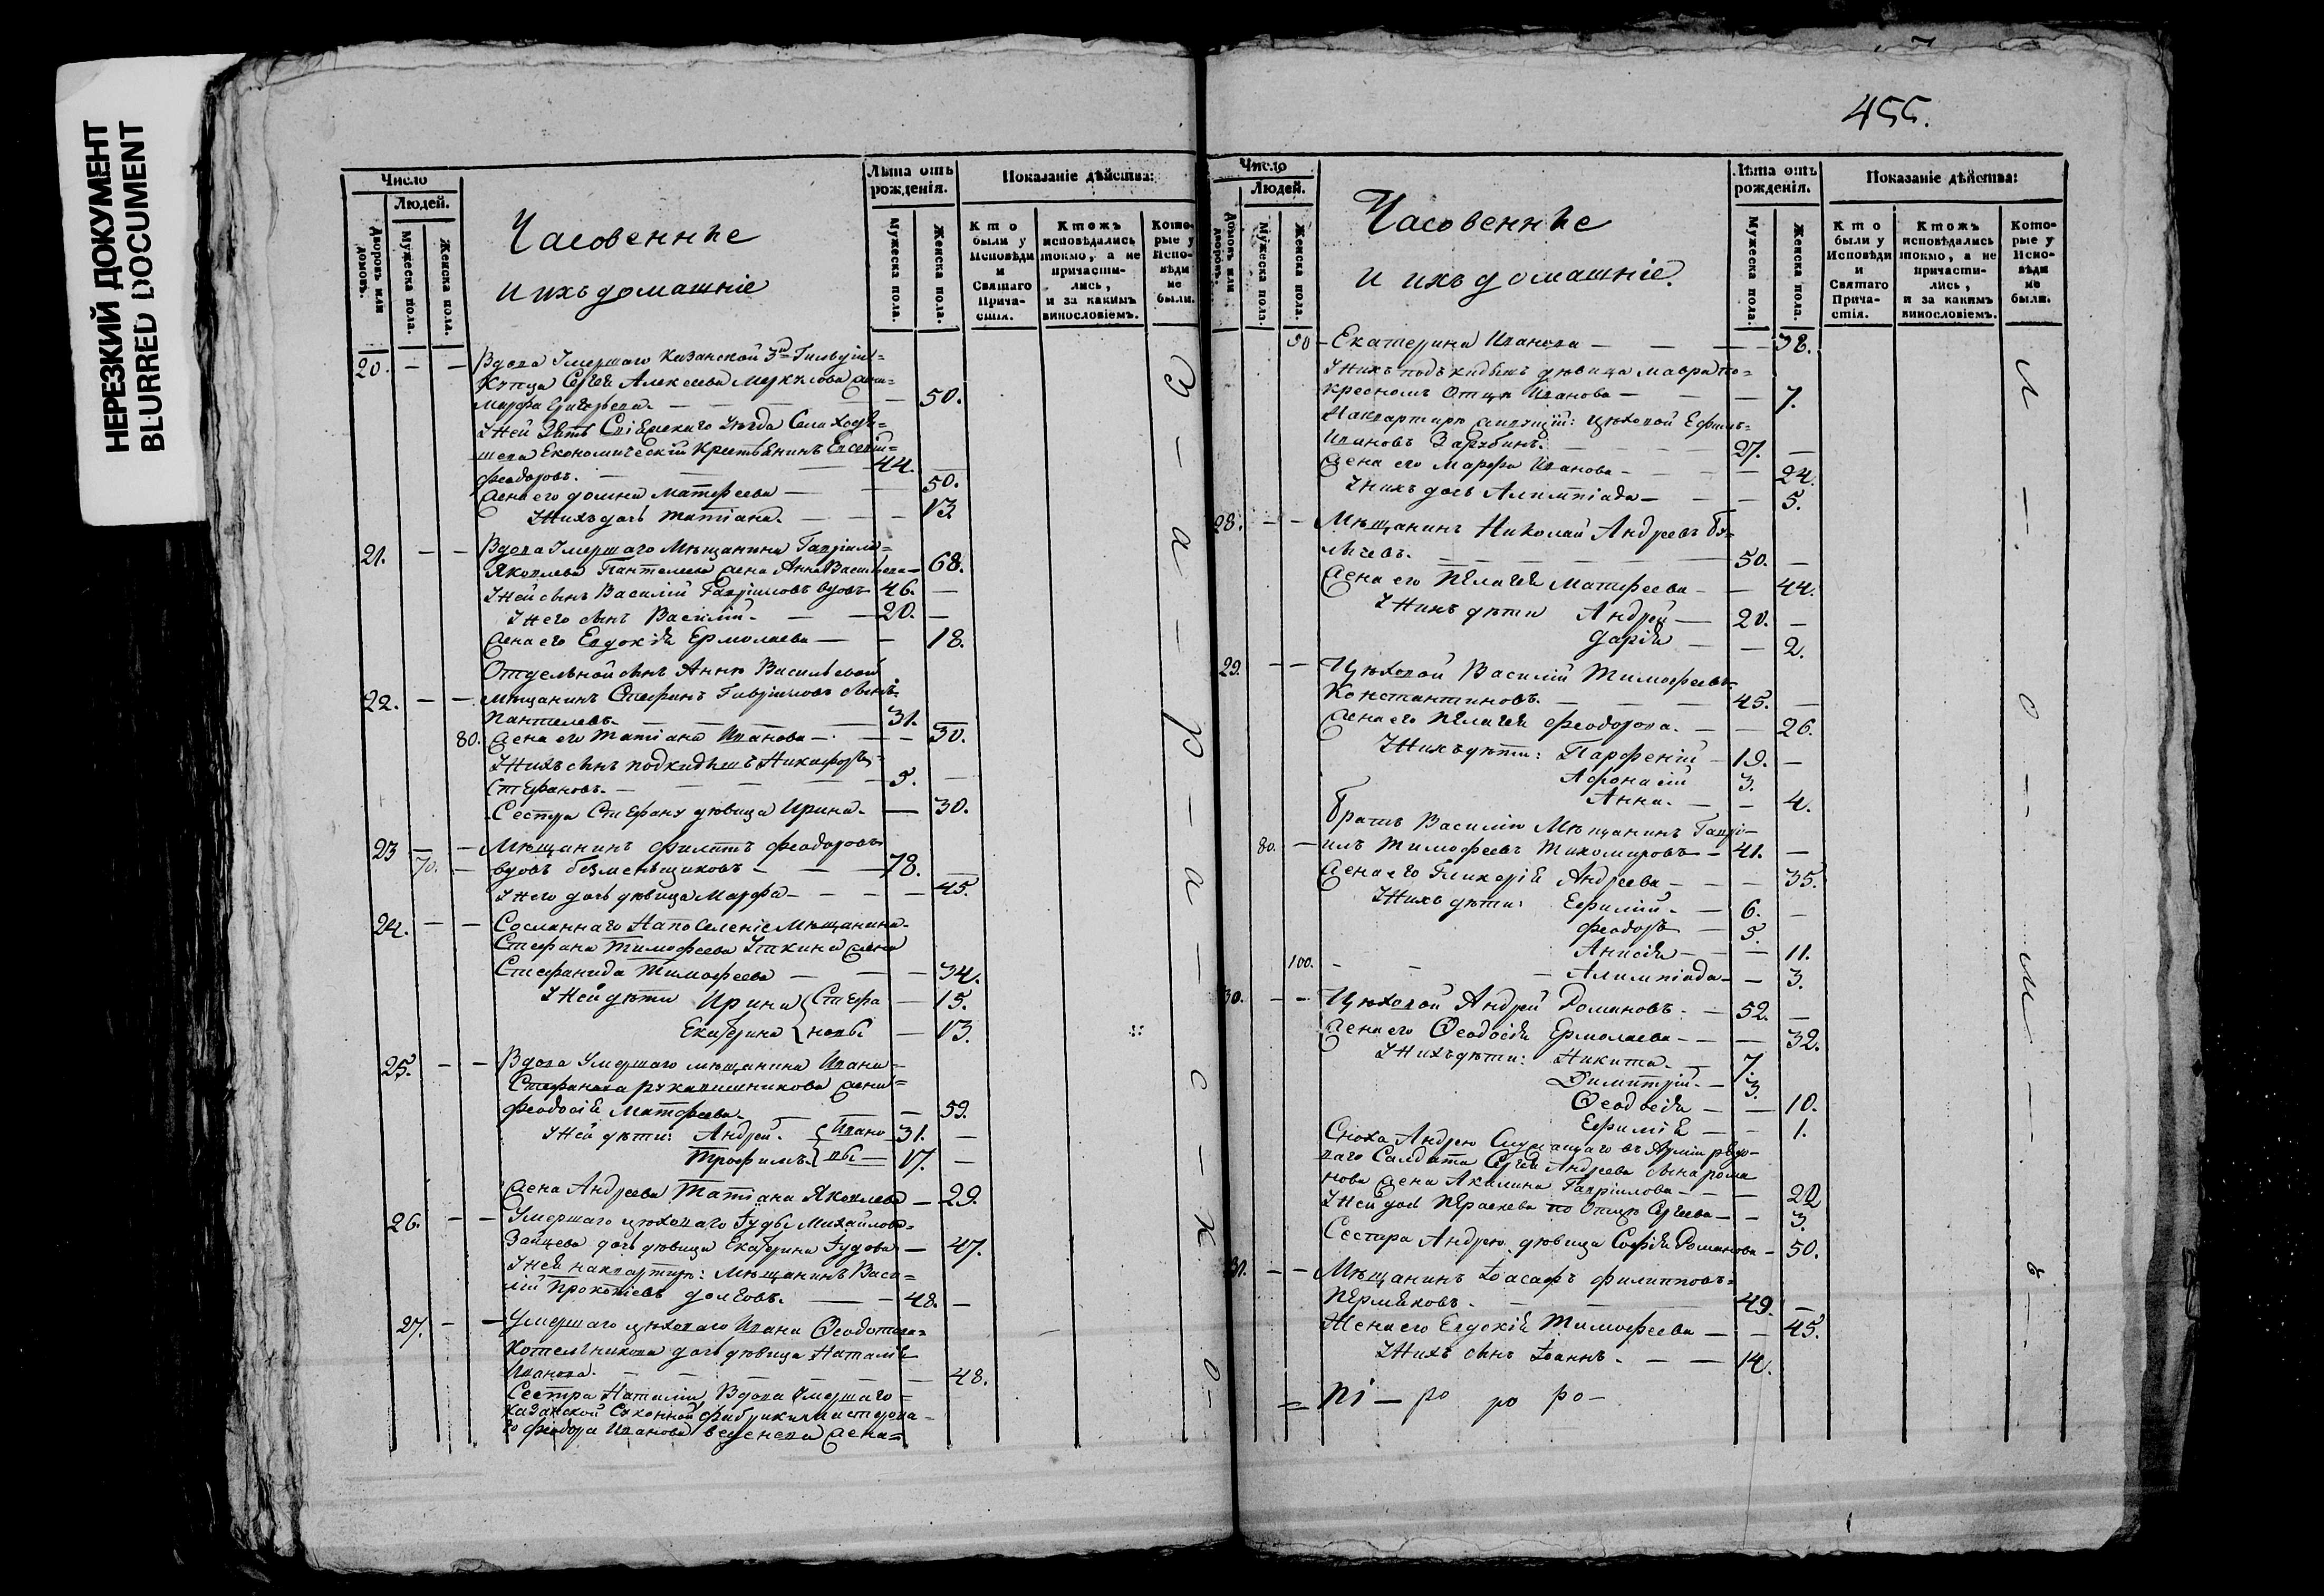 НЕРЕЗКИЙ ДОКУМЕНТ
BLURRED DOCUMENT
455.
Число
Людей.
Дворовъ или домовъ.
Мужеска пола.
Женска пола.
Часовенные
и ихъ домашніе
Лѣта отъ рожденія.
Мужеска пола.
Женска пола.
Показаніе дѣйства:
Кто были у Исповѣди и Святаго Причастія.
Ктожъ исповѣдались токмо, а не причастились, и за какимъ винословіемъ.
Которые у Исповѣди не были.
20. — — Вдова Умершаго Казанской 3й Гильдіи=
Купца Сергея Алексеева жена=
Марфа Григорьева — 50.
У Ней Зять Уѣзда Села
Економическій Крестьянинъ Евсевій=
Феодоровъ. — 44. —
Жена его Домна Матфеева — 50.
У Нихъ дочь Татіана. — 13
21. — — Вдова Умершаго Мѣщанина Гавріила=
Яковлева Пантелеева жена Анна Васильева — 68.
У Ней сынъ Василій Гавріиловъ вдовъ 46. —
У Него сынъ Василій. — 20. —
Жена его Евдокія Ермолаева — 18.
Отдельной сынъ Анны Васильевой
22. — — мѣщанинъ Стефанъ Гавріиловъ сынъ=
Пантелеевъ. — 31. —
80. Жена его Татіана Иванова — 30.
У Нихъ сынъ подкидышъ Никифоръ=
Стефановъ. — 5. —
Сестра Стефану дѣвица Ирина. — 30.
23 — — Мѣщанинъ Филиппъ Феодоровъ
70. — вдовъ Безменьщиковъ — 78. —
У Него дочь дѣвица Марфа — 45.
24. — — Сосланнаго На поселеніе Мѣщанина
Стефана Тимофеева Уткина жена
Стефанида Тимофеева — 34.
У Ней дѣти Ирина { Стефа — 15.
Екатерина { новы — 13.
25. — — Вдова Умершаго мѣщанина Ивана=
Стефанова Рукавишникова жена=
Феодосія Матфеева. — 59.
У Ней дѣти: Андрей. { Ивано 31. —
Трофимъ. { вы — 17. —
Жена Андреева Татіана Яковлева — 29.
26. — — Умершаго цѣховаго Іуды Михайлова=
Зайцева дочь дѣвица Екатерина Іудова — 47.
У Ней на квартирѣ: Мѣщанинъ Васи=
лій Прокопіевъ Долговъ. — 48. —
27. — — Умершаго цѣховаго Ивана Ѳеодотова=
Котельникова дочь дѣвица Наталія
Иванова. — 48.
Сестра Наталіи, Вдова Умершаго=
Казанской Суконной фабрики мастерова=
го Феодора Иванова жена=
З — а — р — а — с — к — о —
Число
Людей.
Домовъ или дворовъ.
Мужеска пола.
Женска пола.
Часовенные
и ихъ домашніе.
Лѣта отъ рожденія.
Мужеска пола.
Женска пола.
Показаніе дѣйства:
Кто были у Исповѣди и Святаго Причастія.
Ктожъ исповѣдались токмо, а не причастились, и за какимъ винословіемъ.
Которые у Исповѣди не были.
90 — Екатерина Иванова — 38.
У Нихъ подъкидышъ дѣвица Мавра по=
крестномъ Отцѣ Иванова — 7.
На квартирѣ живущій: Цѣховой Ефимъ=
Ивановъ Зарубинъ. — 27. —
Жена его Марфа Иванова — 24.
У Нихъ дочь Алимпіада — 5.
28. — — Мѣщанинъ Николай Андреевъ Бу=
лычевъ. — 50. —
Жена его Пелагея Матфеева — 44.
У Нихъ дѣти Андрей — 20. —
Дарія — 2.
29. — — Цѣховой Василій Тимофеевъ=
Константиновъ. — 45. —
Жена его Пелагея Феодорова. — 26.
У Нихъ дѣти: Парфеній — 19. —
Афонасій 3.
Анна. — 4.
Братъ Василію Мѣщанинъ Гаврі=
80. — илъ Тимофеевъ Тихомировъ — 41. —
Жена его Гликерія Андреева — 35.
У Нихъ дѣти: Ефимій. — 6. —
Феодоръ — 5.
Анисія — 11.
100. — Алимпіада — 3.
30. — — Цѣховой Андрей Романовъ. — 52. —
Жена его Ѳеодосія Ермолаева — 32.
У Нихъ дѣти: Никита. — 7.
Димитрій. — 3.
Ѳеодосія — 10.
Ефимія — 1.
Сноха Андрею Служащаго въ Арміи рядо=
ваго Салдата Сергея Андреева сына Рома
нова жена Акилина Гавріилова — 20
У Ней дочь Параскева по Отцѣ Сергеева — 3.
Сестра Андрею дѣвица Софія Романова — 50.
31. — — Мѣщанинъ Іоасафъ Филипповъ=
Пермяковъ. — 49. —
Жена его Евдокія Тимофеева — 45.
У Нихъ сынъ Іоаннъ. — 14.
л — о — м — ъ —